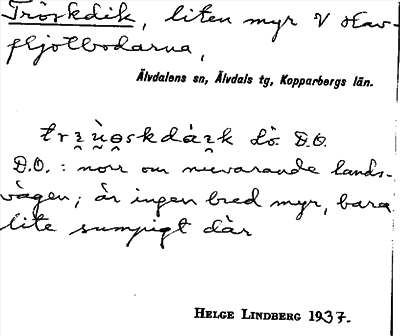 Tröskdik, liten myr V Hav-
fljotbodarna,
Älvdalens sn, Älvdals tg, Kopparbergs län.
D.O.
D.O.: norr om nuvarande lands-
vägen; är ingen bred myr, bara
lite sumpigt där
HELGE LINDBERG 1937.